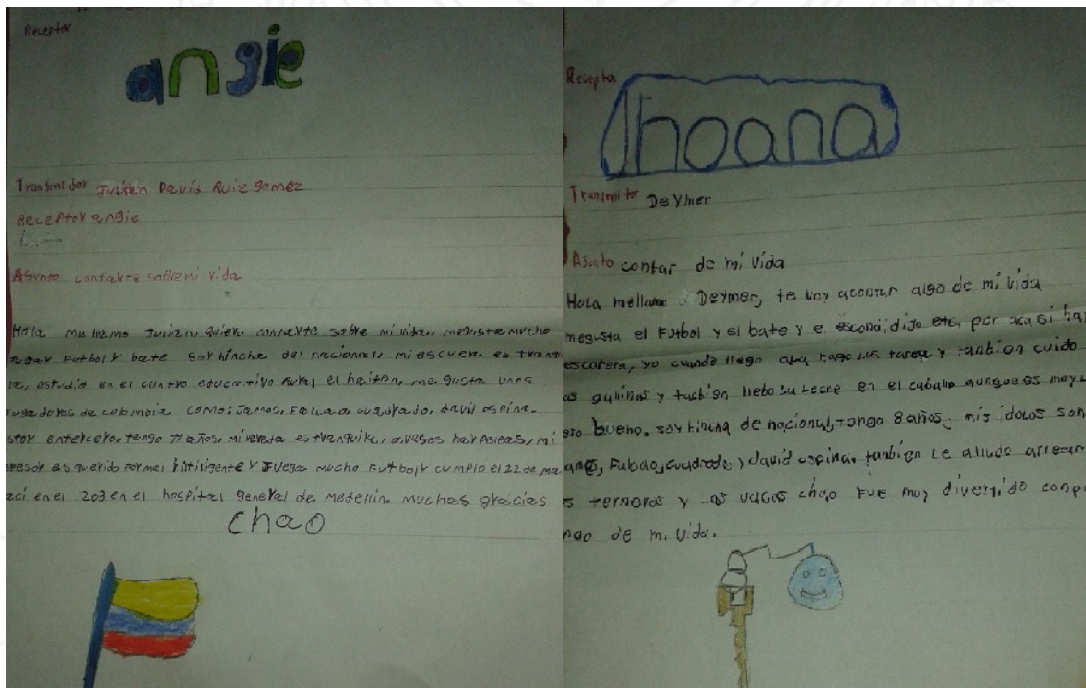 Receptor
angie
Transmisor Julian David Ruiz gomez
Receptor angie
Asunto contarte sobre mi vida
Hola me llamo Julian quiero contarte sobre mi vida me gusta mucho
jugar Futbol y bate soy hincha del nacional, mi escuela es tranq
estudio en el centro educativo Rural el me gusta unos
jugadores de colombia como: James, Falcao cuadrado, david ospina.
stoy entercero, tengo años, mi vereda es tranquila, aveses hay Peleas, mi
fesor es querido Formal intiligente Y Juega mucho Futbol y cumplo el 22 de ma
aci en el 203 en el hospital General de Medellin muchas gracias
chao
Recepto
Jhoana
Transmito Deymer
Asunto contar de mi vida
Hola mellamo Deymer, te voy acontar algo de mi vida
megusta el Futbol y el bate y e escondidijo etc, por aca si ha
escatera, yo cuando llego hago las tarea y tanbien cuido
as gallinas y tanbien llebo la leche en el caballo aunque es muy
ero bueno. soy hincha de nacional, tengo 8 años, mis idolos son
ames, Falcao, cuadrado y david ospina. tanbien le alludo arrear
s terneros y las vacas chao Fue muy divertido conp
ngo de mi vida.